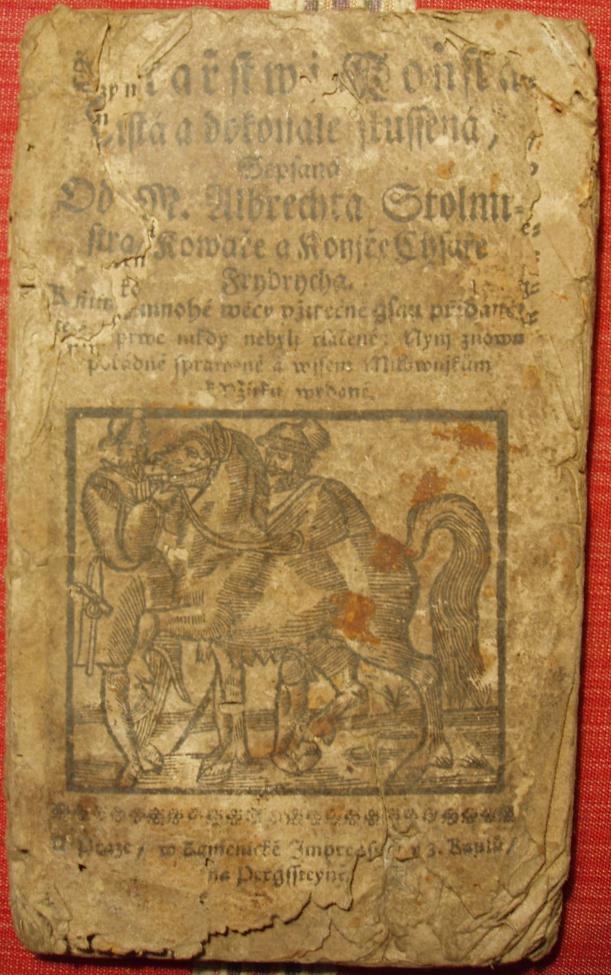 Koňska
Cistá a dokonale zkussená,
Sepsaná
Od M. Albrechta Stolmi-
stra, Kowáře a Konjře Cysaře
Frydrycha.
mnohé wěcy vžitečné gsau přidané
prwé nikdy nebyli tlačené: Nynj znowu
pořádně sprawené a wssem Milownjkům
k vžitku wydané.
w Praze, w Impressý v J.
na Pergssteyně,